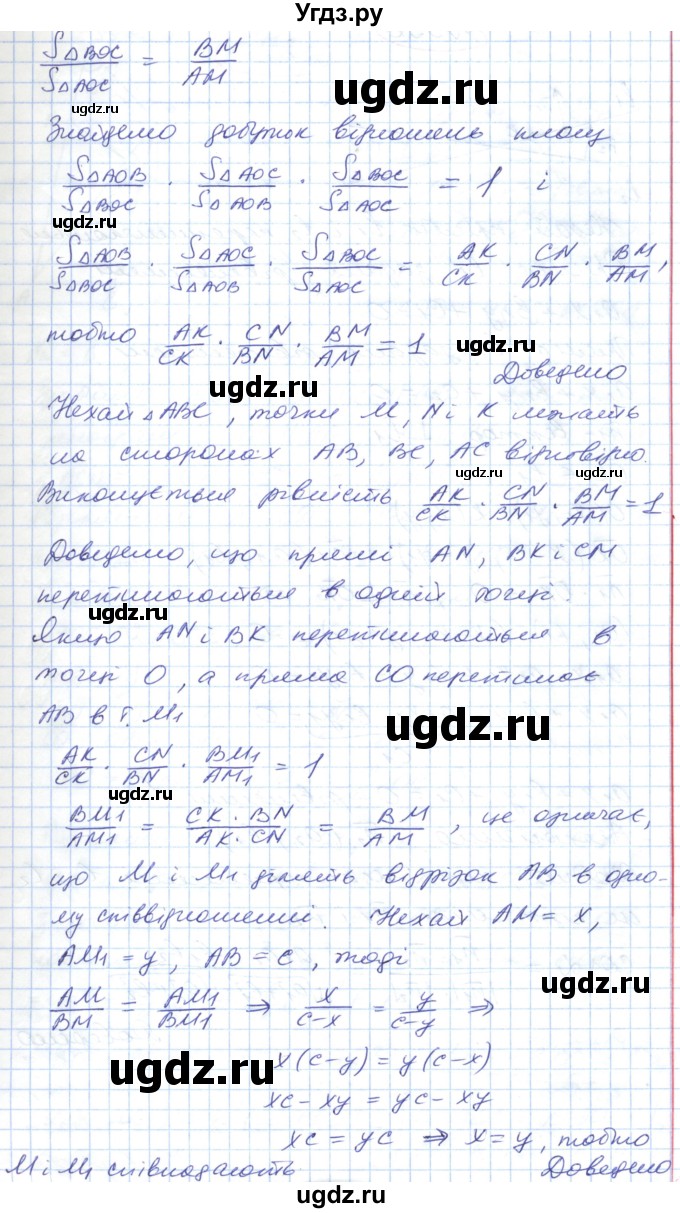 Угдз.ру
S△BOC / S△AOC = BM / AM
ugdz.ru
ugdz.ru
Знайдемо добуток відношень площ
S△AOB / S△BOC · S△AOC / S△AOB · S△BOC / S△AOC = 1 і
ugdz.ru
S△AOB / S△BOC · S△AOC / S△AOB · S△BOC / S△AOC = AK / CK · CN / BN · BM / AM,
тобто AK / CK · CN / BN · BM / AM = 1
ugdz.ru
ugdz.ru
Доведено
Нехай △ABC, точки M, N і K лежать
на сторонах AB, BC, AC відповідно.
ugdz.ru
ugdz.ru
Виконується рівність AK / CK · CN / BN · BM / AM = 1
Доведемо, що прямі AN, BK і CM
перетинаються в одній точці.
ugdz.ru
Якщо AN і BK перетинаються в
точці O, а пряма CO перетинає
AB в т. M1
ugdz.ru
AK / CK · CN / BN · BM1 / AM1 = 1
ugdz.ru
BM1 / AM1 = CK · BN / AK · CN = BM / AM, це означає,
що M і M1 ділять відрізок AB в одно-
му співвідношенні. Нехай AM = x,
AM1 = y, AB = c, тоді
ugdz.ru
AM / BM = AM1 / BM1 ⇒ x / c-x = y / c-y ⇒
ugdz.ru
x(c-y) = y(c-x)
xc-xy = yc-xy
xc = yc ⇒ x=y, тобто
M і M1 співпадають
Доведено
ugdz.ru